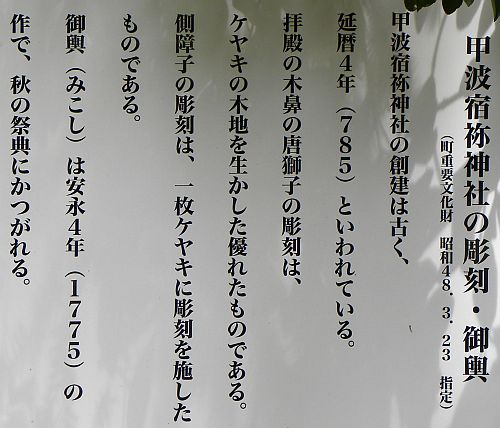 甲波宿祢神社の彫刻・御輿
（町重要文化財　昭和48．3．23　指定）
甲波宿祢神社の創建は古く、
延暦4年（785）といわれている。
拝殿の木鼻の唐獅子の彫刻は、
ケヤキの木地を生かした優れたものである。
側障子の彫刻は、一枚ケヤキに彫刻を施した
ものである。
御輿（みこし）は安永4年（1775）の
作で、秋の祭典にかつがれる。